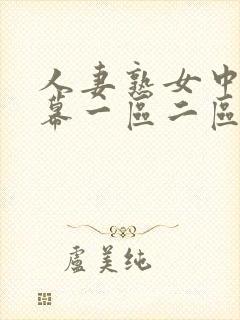 人妻熟女中
幕一區二區
盧美纯